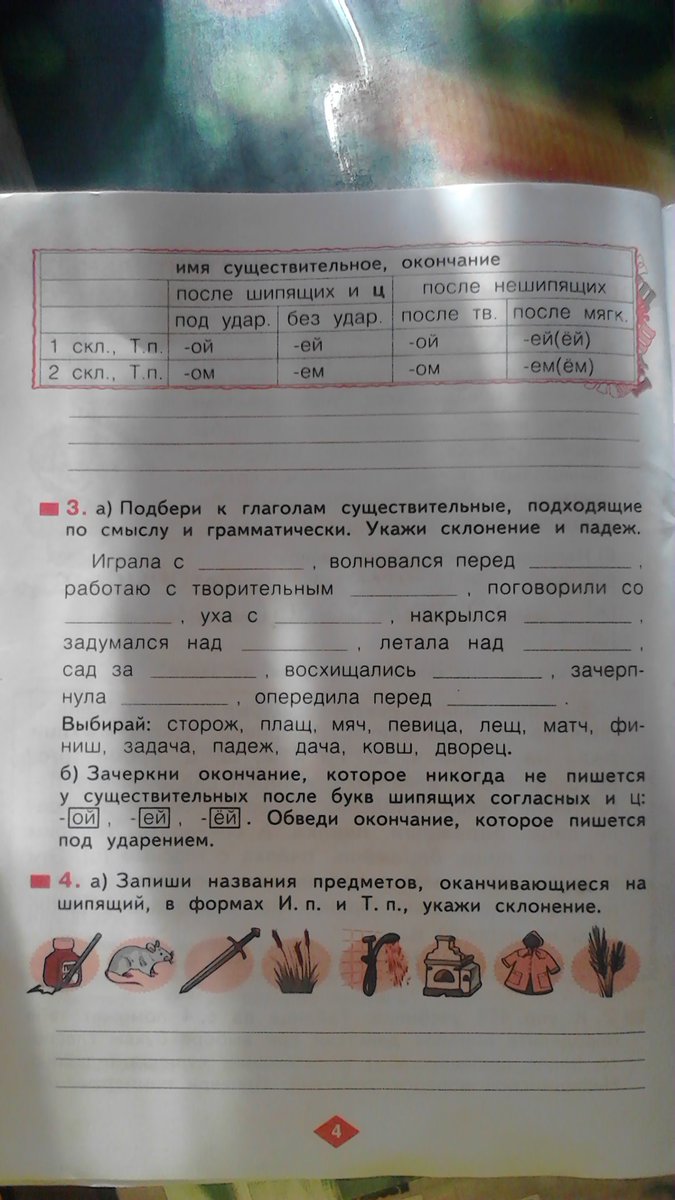 имя существительное, окончание
после шипящих и ц после нешипящих
под удар. без удар. после тв. после мягк.
1 скл., Т.п. -ой -ей -ой -ей(ёй)
2 скл., Т.п. -ом -ем -ом -ем(ём)
3. а) Подбери к глаголам существительные, подходящие
по смыслу и грамматически. Укажи склонение и падеж.
Играла с __________ , волновался перед __________ ,
работаю с творительным __________ , поговорили со
__________ , уха с __________ , накрылся __________ ,
задумался над __________ , летала над __________ ,
сад за __________ , восхищались __________ , зачерп-
нула __________ , опередила перед __________ .
Выбирай: сторож, плащ, мяч, певица, лещ, матч, фи-
ниш, задача, падеж, дача, ковш, дворец.
б) Зачеркни окончание, которое никогда не пишется
у существительных после букв шипящих согласных и ц:
-ой , -ей , -ёй . Обведи окончание, которое пишется
под ударением.
4. а) Запиши названия предметов, оканчивающиеся на
шипящий, в формах И. п. и Т. п., укажи склонение.
4